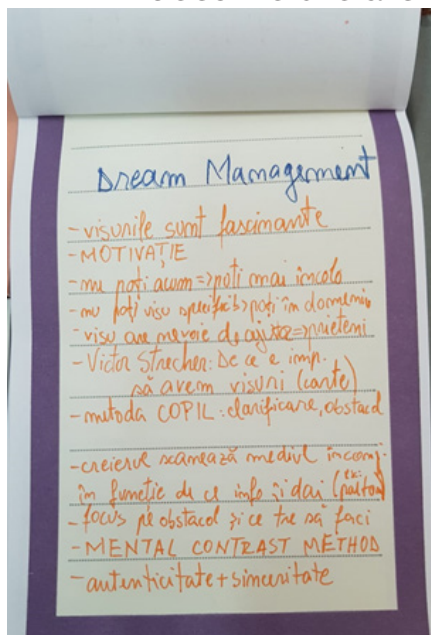 Dream Management
- visurile sunt fascinante
- MOTIVAȚIE
- nu poți acum => poți mai încolo
- nu poți visu specific => poți în domeniu
- visu are nevoie de ajutor => prieteni
- Victor Strecher: De ce e imp.
să avem visuri (carte)
- metoda COPIL: clarificare, obstacol
- creierul scanează mediul înconj.
în funcție de ce info îi dai (ex:
- focus pe obstacol și ce tre să faci
- MENTAL CONTRAST METHOD
- autenticitate + sinceritate